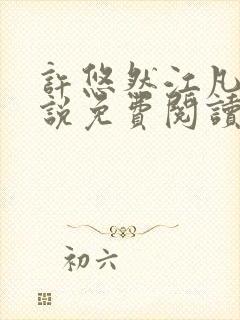 許悠然江凡
說免費閱讀
初六